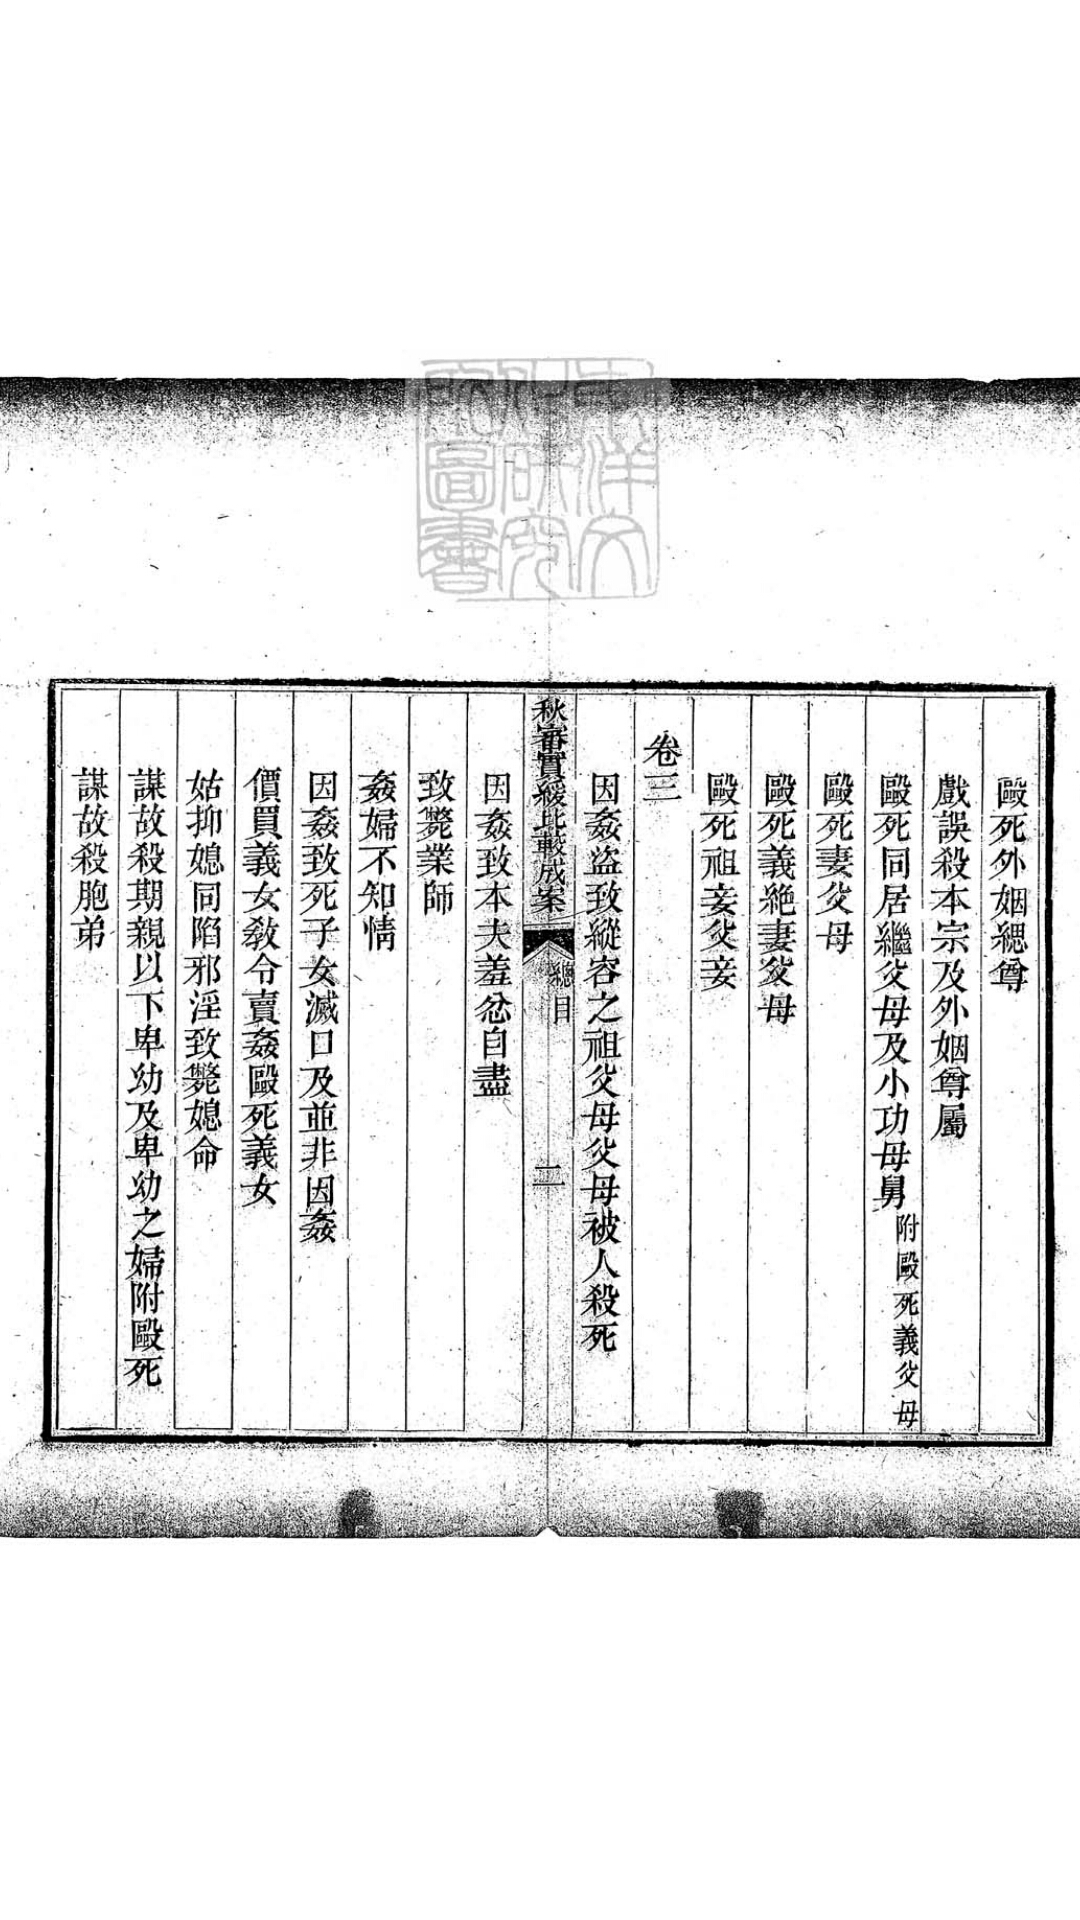 毆死外姻緦尊
戲誤殺本宗及外姻尊屬
毆死同居繼父母及小功母舅附毆死義父母
毆死妻父母
毆死義絶妻父母
毆死祖妾父妾
卷三
因姦盜致縱容之祖父母父母被人殺死
秋審實緩比較成案 總目 二
因姦致本夫羞忿自盡
致斃業師
姦婦不知情
因姦致死子女滅口及並非因姦
價買義女教令賣姦毆死義女
姑抑媳同陷邪淫致斃媳命
謀故殺期親以下卑幼及卑幼之婦附毆死
謀故殺胞弟
東洋文
化研究
所圖書